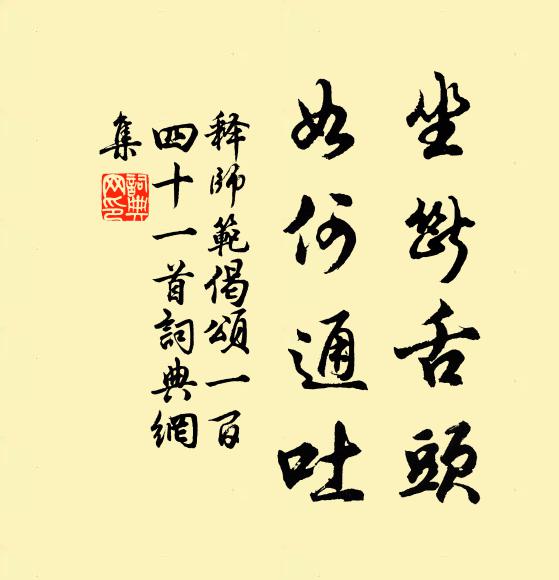 坐斷舌頭
如何通吐
釋師範偈頌一百
四十一首詞典網
集
詞典
网印